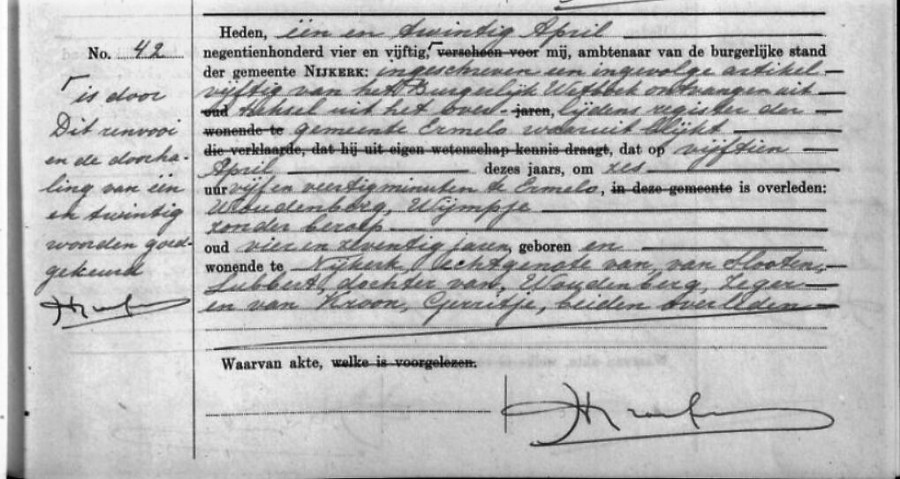 No. 42
⌈ is door
Dit renvooi
en de doorha-
ling van één
en twintig
woorden goed-
gekeurd
Heden, één en twintig April
negentienhonderd vier en vijftig, ⌈ verscheen voor mij, ambtenaar van de burgerlijke stand
der gemeente NIJKERK: ingeschreven en ingevolge artikel
vijftig van het Burgerlijk Wetboek ontvangen uit-
oud treksel uit het over- jaren, lijdens register der
wonende te gemeente Ermelo waaruit blijkt
die verklaarde, dat hij uit eigen wetenschap kennis draagt, dat op vijftien
April dezes jaars, om zes
uur vijf en veertig minuten te Ermelo, in deze gemeente is overleden:
Woudenberg, Wijmpje
zonder beroep
oud vier en zeventig jaren, geboren en
wonende te Nijkerk, echtgenote van van Slooten,
Lubbert, dochter van, Woudenberg, Zeger
en van Kroon, Gerritje, beiden overleden
Waarvan akte, welke is voorgelezen.